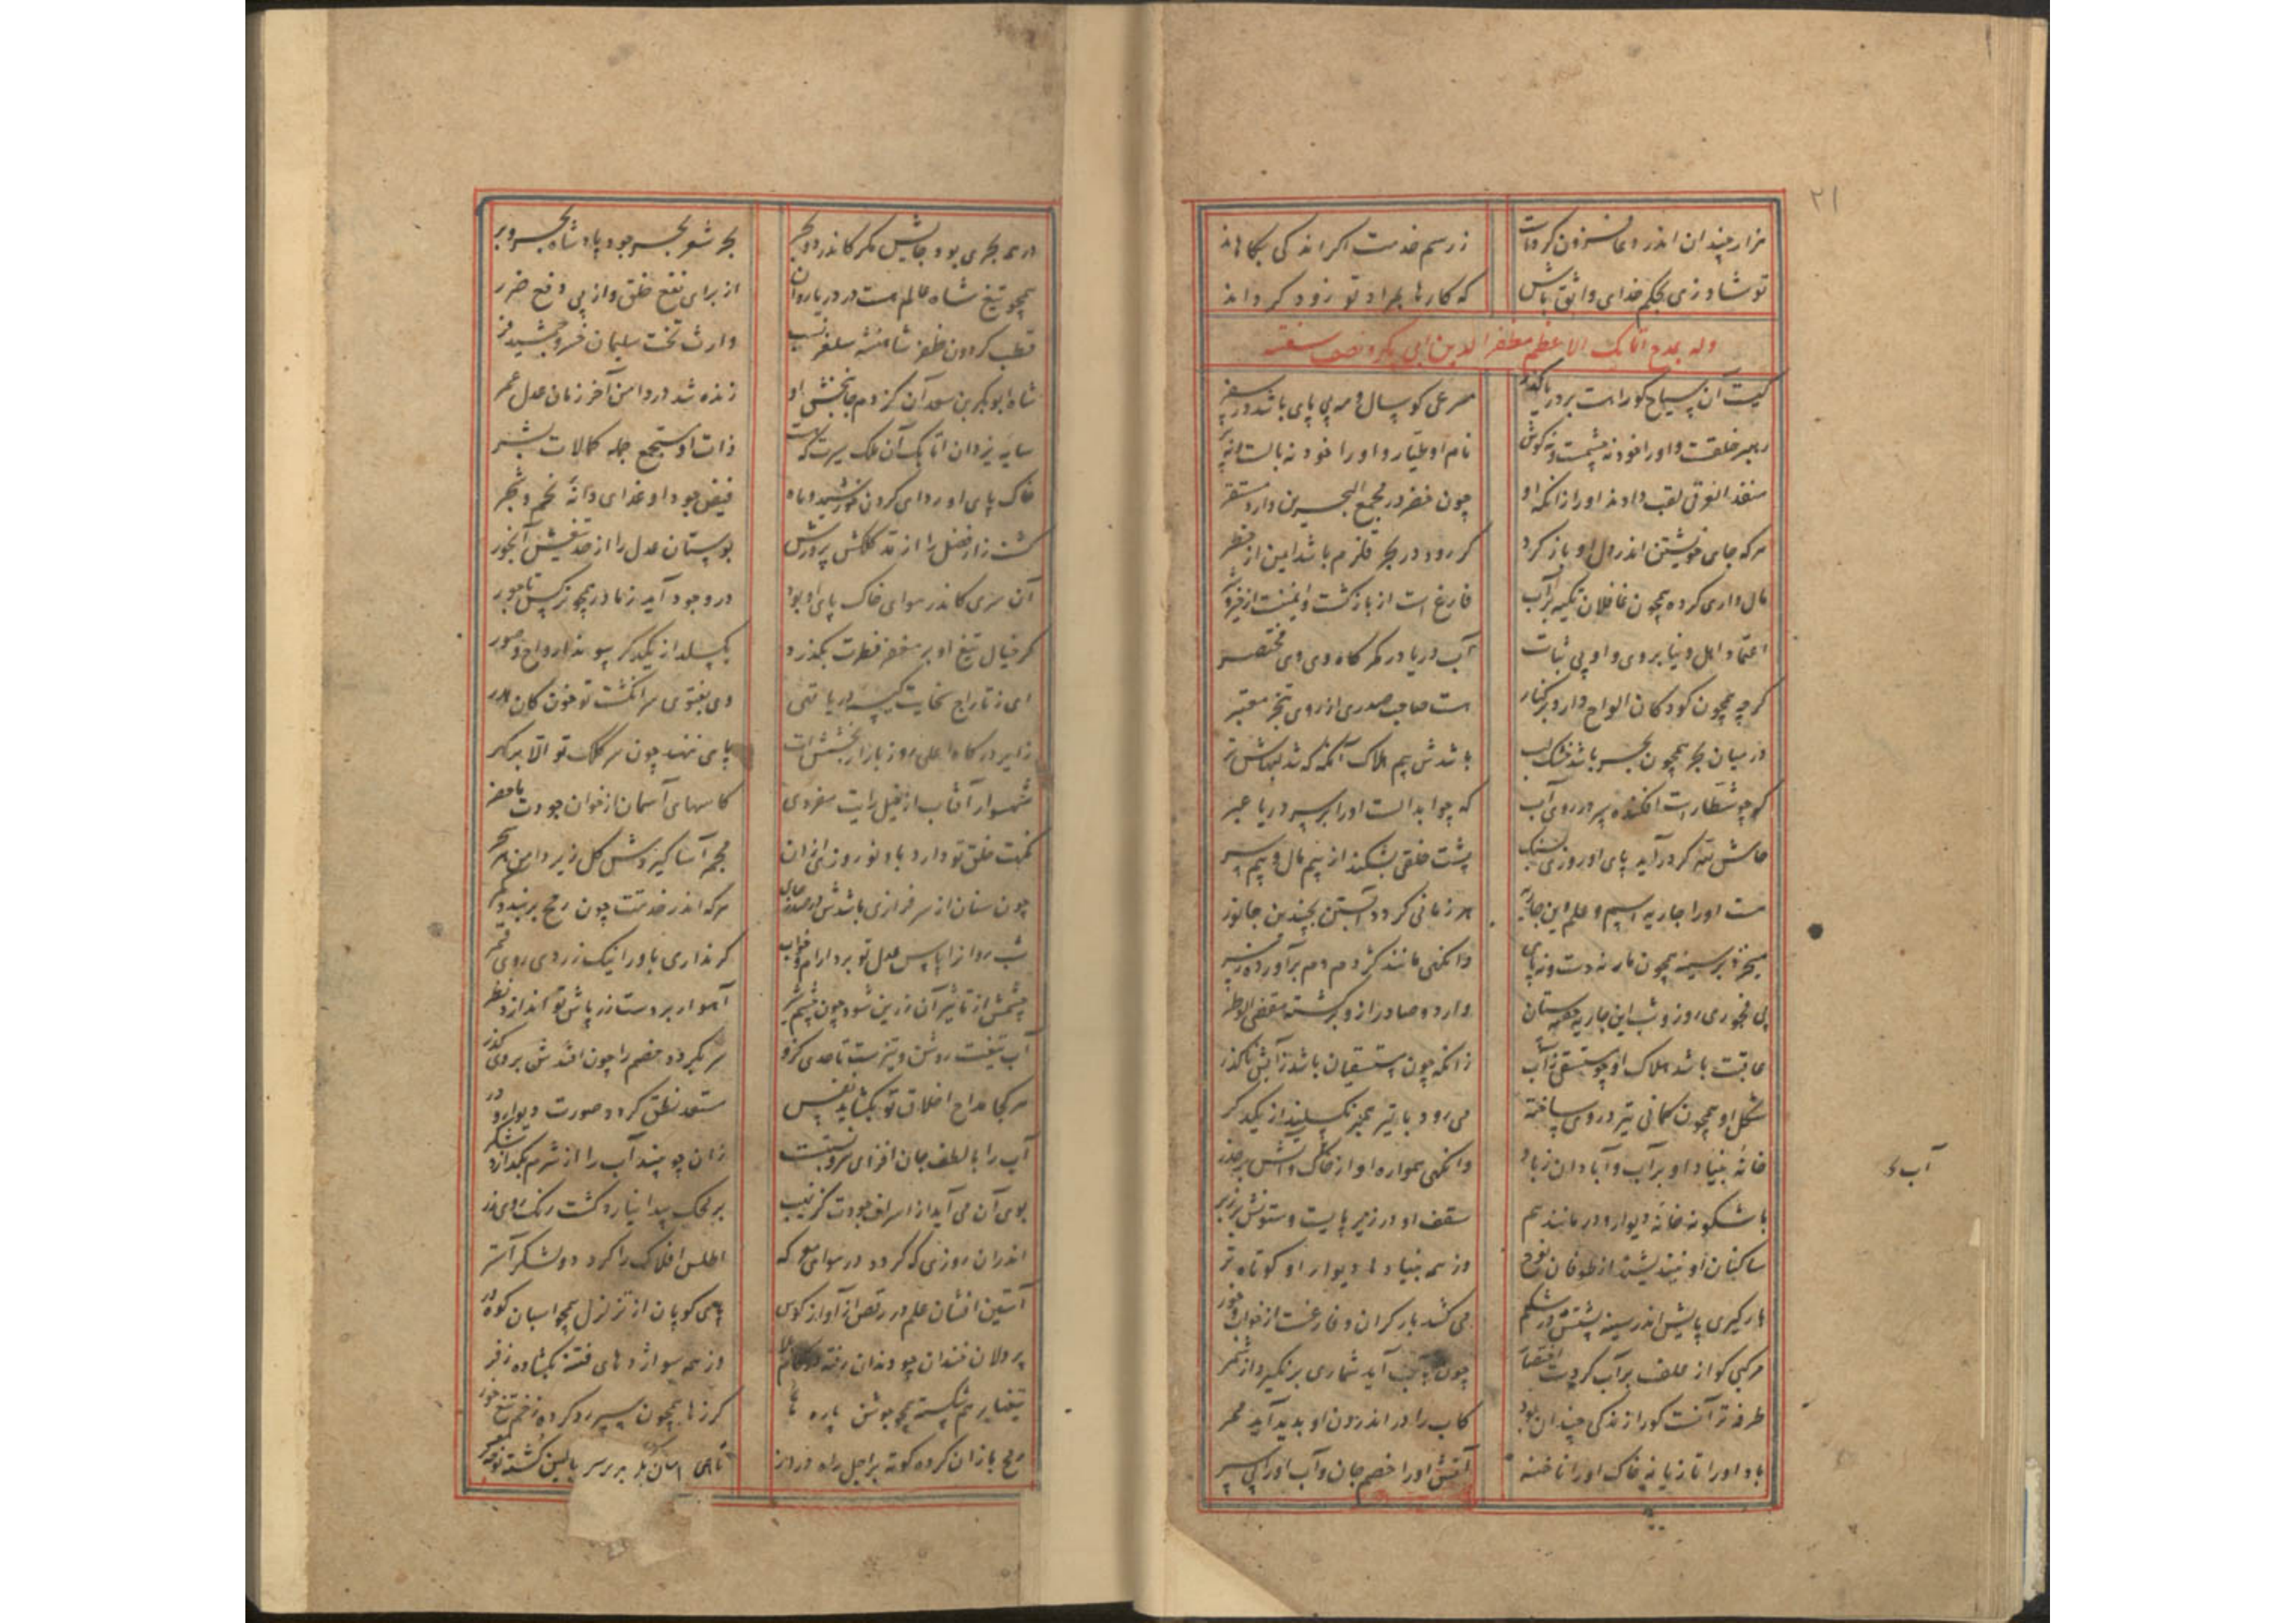 ۲۱
هزار چندان اندر دعا فزون کردست
ز رسم خدمت اگر اندکی بکاهاند
تو شاد زی بحکم خدای واثق باش
که کارها بمراد تو زود گرداند
وله بمدح اتابک الاعظم مظفر الدین ابی بکر و نصف سفینه
کیست آن سیاح کو راهست بر دریا گذر
مسرعی کو سال و مه بی پای باشد در سفر
رهبر خلقست و او را خود نه چشمست و نه گوش
نام او طیار و او را خود نه بالست و نه پر
منقذ الغرقی لقب دادند او را زانکه او
چون خضر در مجمع البحرین دارد مستقر
هرکه جای خویشتن اندر دل او باز کرد
گر رود در بحر قلزم باشد ایمن از خطر
مال داری کرده همچون غافلان تکیه بر آب
فارغ است از بازگشت و ایمنست از خیر و شر
اعتماد اهل دنیا بر وی و او بی ثبات
آب دریا در گهرگاه وی وی مختصر
گرچه همچون کودکان الواح دارد بر کنار
هست صاحب صدری از روی تبحر معتبر
در میان بحر همچون بحر باشد خشک لب
باشدش بیم هلاک آنگه که شد لبهاش تر
کوچو شطارست افکنده سپر در روی آب
که چو ابدالست او را بر سر دریا عبر
حاش لله گر درآید پای او روزی بسنگ
پشت خلقی بشکند از بیم مال و بیم سر
هست او را جاریه اسم و علم این جاریه
هر زمانی گردد آبستن بچندین جانور
میخزد بر سینه همچون مار نه دست و نه پای
وانگهی مانند کژدم دم برآورده ز سر
بی فجوری روز و شب این جاریه همستان
وارد و صادر ازو برگشته مقضی الوطر
عاقبت باشد هلاک او چو مستسقی ز آب
زانکه چون مستسقیان باشد ز آبش ناگذر
شکل او همچون کمانی تیر در وی ساخته
می رود با تیر همبر نگسلیند از یکدگر
خانهٔ بنیاد او بر آب و آبادان ز باد
وانگهی همواره او از خاک و آتش بر حذر
باشگونه خانهٔ دیوار و در مانند هم
سقف او در زیر پایست و ستونش بر زبر
ساکنان او نیندیشند از طوفان نوح
وز همه بنیادها دیوار او کوتاه تر
بارگیری پایش اندر سینه پشتش در شکم
می کشد بار گران و فارغست از خواب و خور
مرکبی کو از علف بر آب کردست اقتصار
چون بآب آید شماری برنگیرد از شمر
طرفه تر آنست کورا زندگی چندان بود
کاب را در اندرون او پدید آید ممر
باد او را تازیانه خاک او را تاخته
آتش او را خصم جان و آب او را پی سپر
آب ء
در همه بحری بود جایش مگر کاندر دو بحر
بحر شعر بحر جود پادشاه بحر و بر
همچو تیغ شاه عالم هست در دریا روان
از برای نفع خلق و از پی دفع ضرر
قطب گردون ظفر شاهنشه سلغر نسب
وارث تخت سلیمان خسرو جمشید فر
شاه ابوبکر بن سعد آن کز دم جانبخش او
زنده شد در دامن آخر زمان عدل عمر
سایهٔ یزدان اتابک آن ملک سیرت که هست
ذات او مستجمع جمله کمالات بشر
خاک پای او ردای گردن خورشید و ماه
فیض جود او غذای دانهٔ نجم و شجر
کشت زار فضل را از قد کلکش پرورش
بوستان عدل را از حد تیغش آبخور
آن سری کاندر هوای خاک پای او بود
در وجود آید ز مادر همچو نرگس تاجور
گر خیال تیغ او بر مغز فطرت بگذرد
بگسلد از یکدگر پیوند ارواح و صور
ای ز تاراج سخایت کیسهٔ دریا تهی
وی بفتوی سر انگشت تو خون کان هدر
زایر درگاه اعلی روز بازار بخششت
پای ننهد چون سر کلک تو الا بر گهر
شهسوار آفتاب از خیل رایت مفردی
کاسهای آسمان از خوان جودت ماحضر
نکهت خلق تو دارد باد نوروزی ازان
مجمر آسا گیردش گل زیر دامن هر سحر
چون سنان از سرفرازی باشدش در صدر جای
هرکه اندر خدمتت چون رمح بربندد کمر
شب روان را پاس عدل تو برد آرام و خواب
گر نداری باور اینک زردی روی قمر
چشمش از تاثیر آن زرین شود چون چشم شیر
آهو ار بر دست زر پاش تو اندازد نظر
آب تیغت روشن و تیزست تا حدی کزو
سر بگردد خصم را چون افتدش بر وی گذر
هر کجا مداح اخلاق تو بگشاید نفس
مستعد نطق گردد صورت دیوار و در
آب را با لطف جان افزای تو نسبت
زان چو بیند آب را از شرم بگدازد شکر
بوی آن می آید از اسراف جودت کز نهیب
بر محک پیدا نیارد گشت رنگ روی زر
اندران روزی که گردد در هوای معرکه
اطلس افلاک را گرد دو لشکر آستر
آستین افشان علم در رقص از آواز کوس
پای کوبان از تزلزل همچو اسبان کوه و در
پردلان خندان چو دندان رفته در کام بلا
وز همه سو اژدهای فتنه بگشاده زفر
تیغها بر هم شکسته همچو جوشن پاره
گرزها همچون سپر رو کرده زخم تیغ خور
رمح یازان کرده کوته بر اجل راه دراز